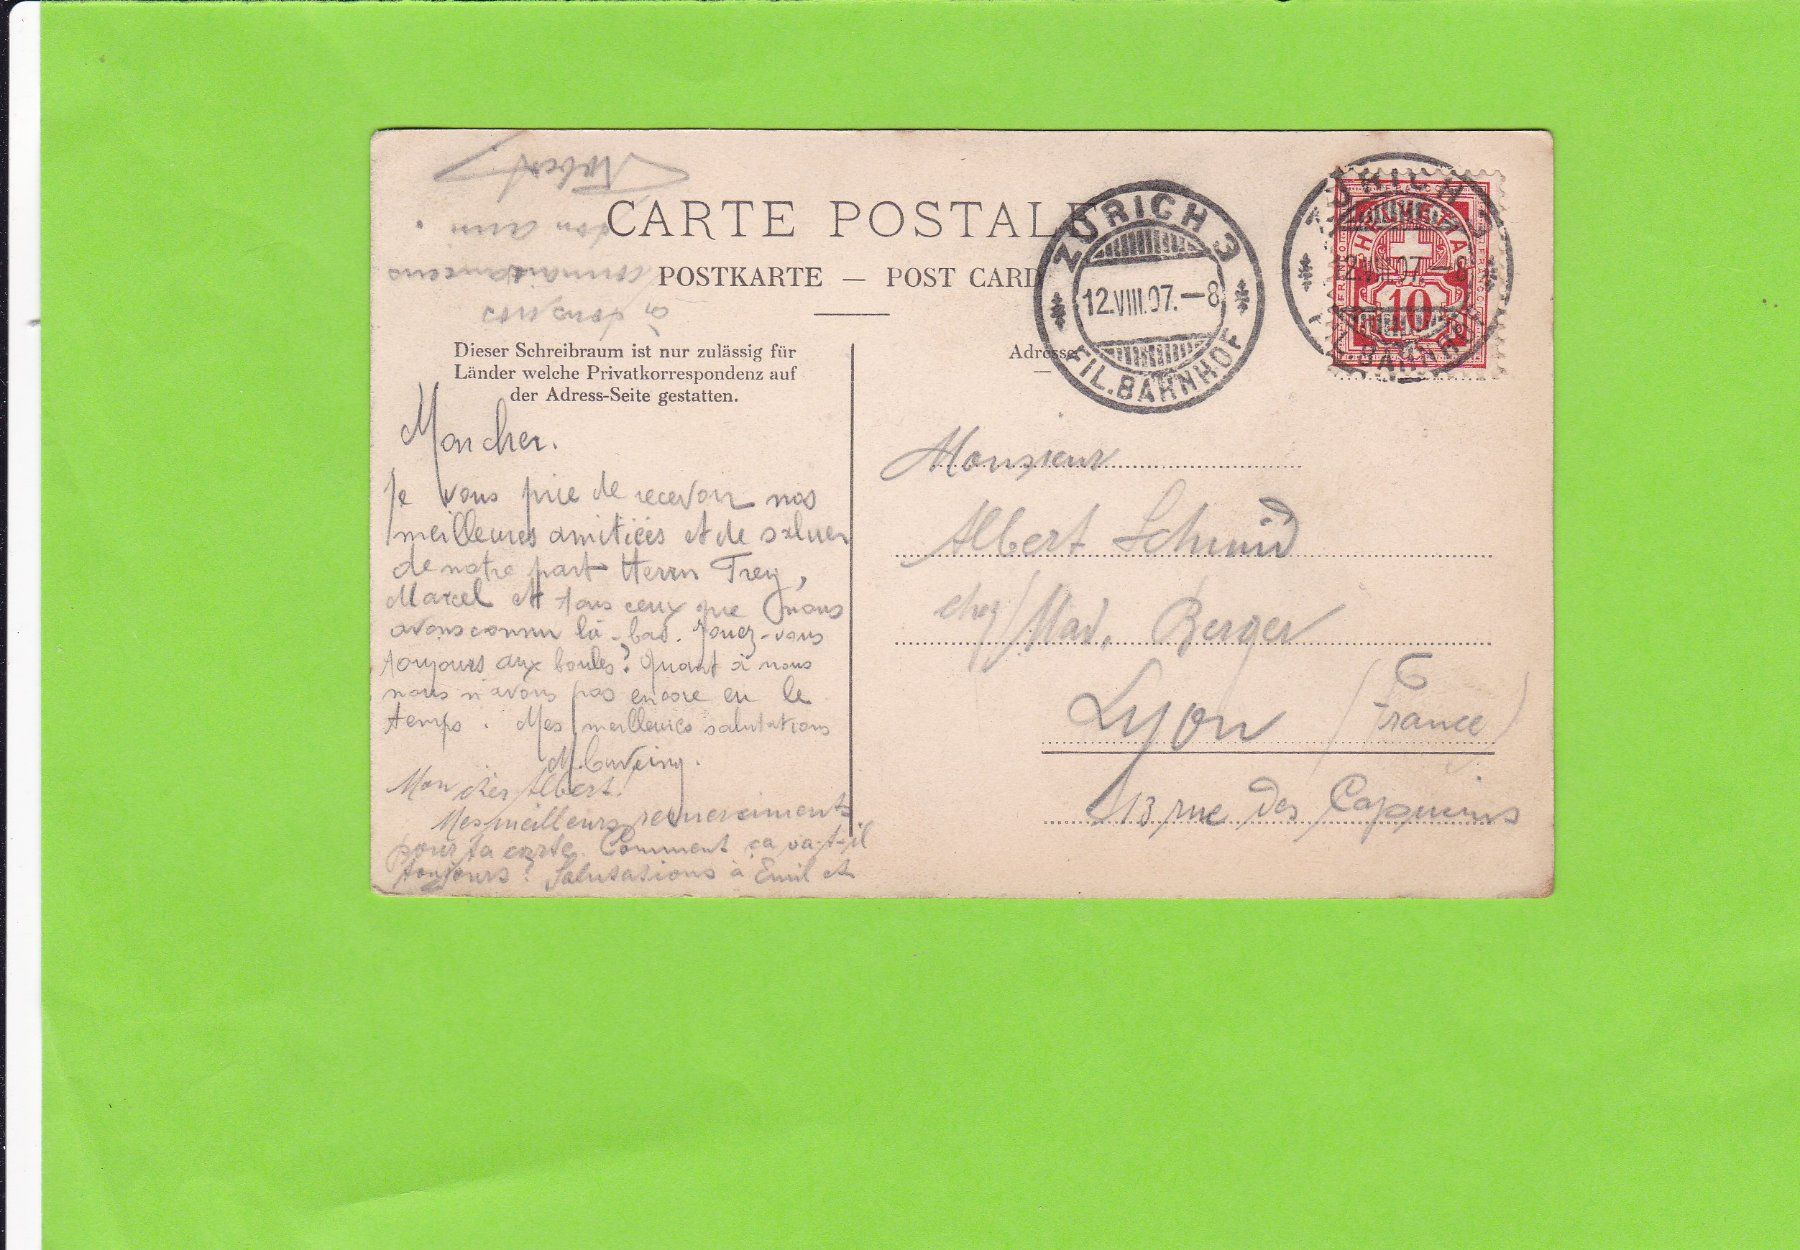 CARTE POSTALE
POSTKARTE — POST CARD
Dieser Schreibraum ist nur zulässig für
Länder welche Privatkorrespondenz auf
der Adress-Seite gestatten.
Adresse
ZÜRICH 3
12.VIII.07.–8
FIL.BAHNHOF
ZÜRICH 3
12.VIII.07.–8
FIL.BAHNHOF
HELVETIA
FRANCO
FRANCO
10
Mon cher.
Je vous prie de recevoir nos
meilleures amitiées et de saluer
de notre part Herrn Frey,
Marcel et tous ceux que nous
avons connu là-bas. Jouez-vous
toujours aux boules? Quant à nous
nous n'avons pas encore eu le
temps. Mes meilleures salutations
Mon cher Albert!
Mes meilleurs remerciments
pour ta carte. Comment ça va-t-il
toujours? Salutations à Emil et
à tous nos
connaissances
ton ami.
Robert.
Monsieur
Albert Schmid
chez Mad. Berger
Lyon (France)
13 rue des Capucins